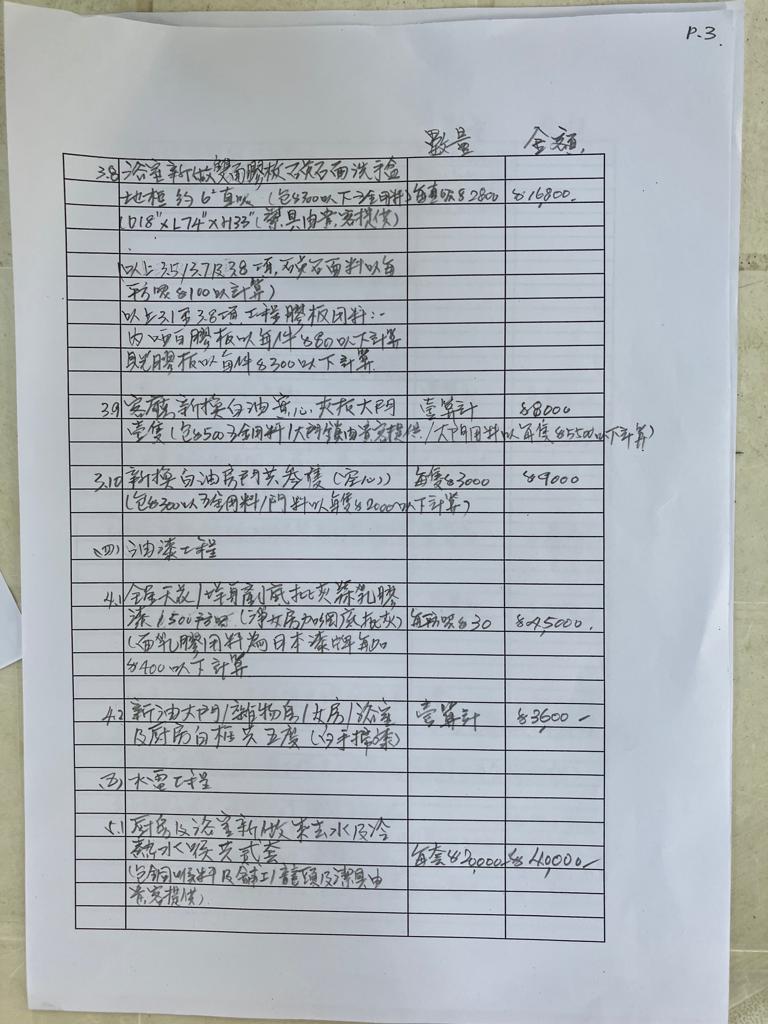 P.3
數量 金額
3.8 浴室新做雙面膠板石英石面洗手盆
地柜約6'直呎(包$300以下五金用料) 每直呎$2800 $16,800.
(D18"xL74"xH33"(潔具由貴客提供)
以上3.5/3.7及3.8項,石英石面料以每
平方呎$100以計算)
以上3.1至3.8項工程膠板用料:-
內啞白膠板以每件$80以下計算
見光膠板以每件$300以下計算
3.9 客廳新換白油實心夾板大門 壹算計 $8000
壹隻(包$500五金用料/大門鎖由貴客提供/大門用料以每隻$5500以下計算)
3.10 新換白油房門共叁隻(空心)) 每隻$3000 $9000
(包$300以五金用料/門料以每隻$2000以下計算)
(四) 油漆工程
4.1 全屋天花/牆身剷底批灰髹乳膠
漆1,500方呎( 每方呎$30 $45,000.
(面乳膠用料為日本漆牌每加
$400以下計算
4.2 新油大門/雜物房/女房/浴室 壹算計 $3600-
及厨房白框共五度(白手掃漆)
(五) 水電工程
5.1 厨房及浴室新做來去水及冷
熱水喉共貳套 每套$20,000 $40,000-
(包銅喉料及舖工/龍頭及潔具由
貴客提供)